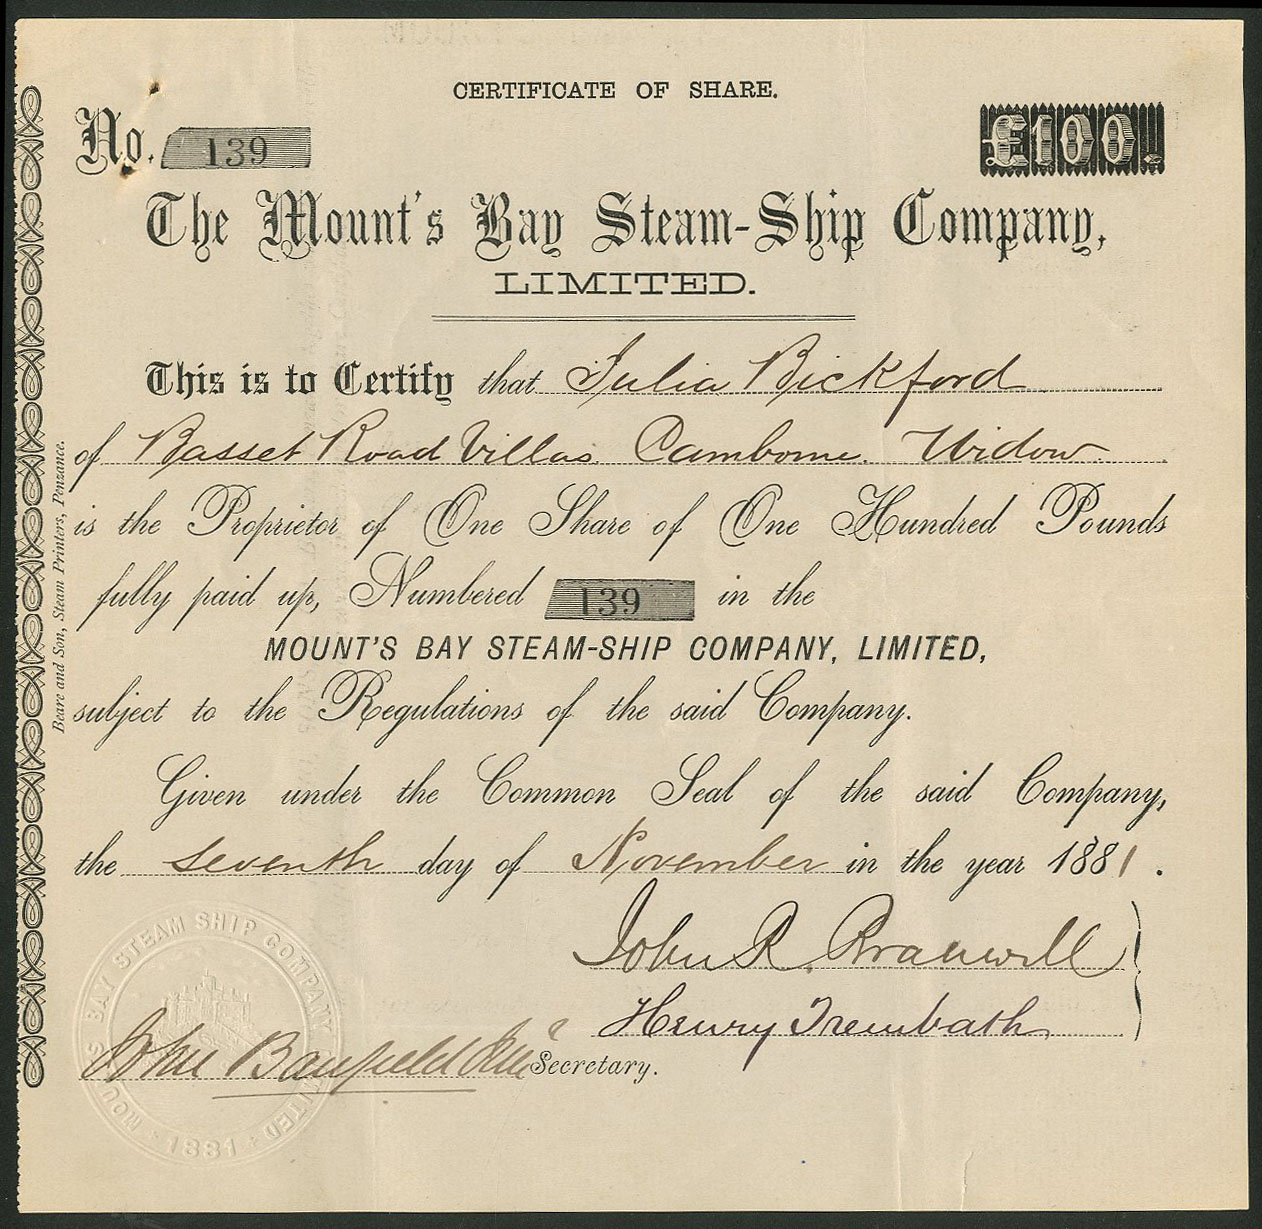 CERTIFICATE OF SHARE.
No. 139
£100.
The Mount's Bay Steam-Ship Company,
LIMITED.
This is to Certify that Julia Bickford
of Basset Road Villas. Camborne. Widow.
is the Proprietor of One Share of One Hundred Pounds
fully paid up, Numbered 139 in the
MOUNT'S BAY STEAM-SHIP COMPANY, LIMITED,
subject to the Regulations of the said Company.
Given under the Common Seal of the said Company,
the seventh day of November in the year 1881.
John R. Branwell
Henry Trembath
John Banfield Secretary.
MOUNT'S BAY STEAM SHIP COMPANY LIMITED
1881
Beare and Son, Steam Printers, Penzance.